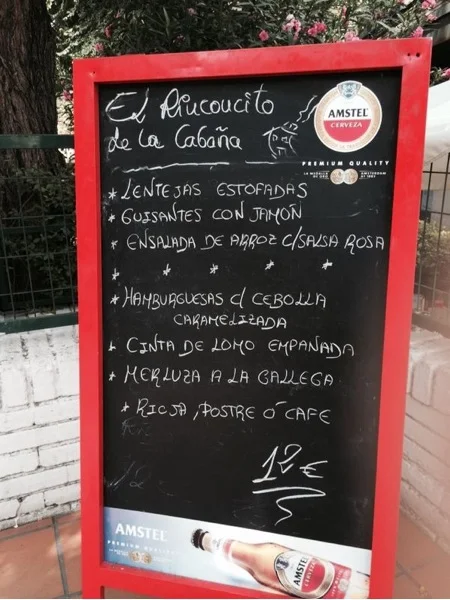 El Rinconcito
de la Cabaña
AMSTEL
CERVEZA
PREMIUM QUALITY
* LENTEJAS ESTOFADAS
* GUISANTES CON JAMÓN
* ENSALADA DE ARROZ C/SALSA ROSA
* * * * *
* HAMBURGUESAS C/ CEBOLLA
CARAMELIZADA
* CINTA DE LOMO EMPANADA
* MERLUZA A LA GALLEGA
* RIOJA, POSTRE Ó CAFE
12€
AMSTEL
PREMIUM QUALITY
AMSTEL